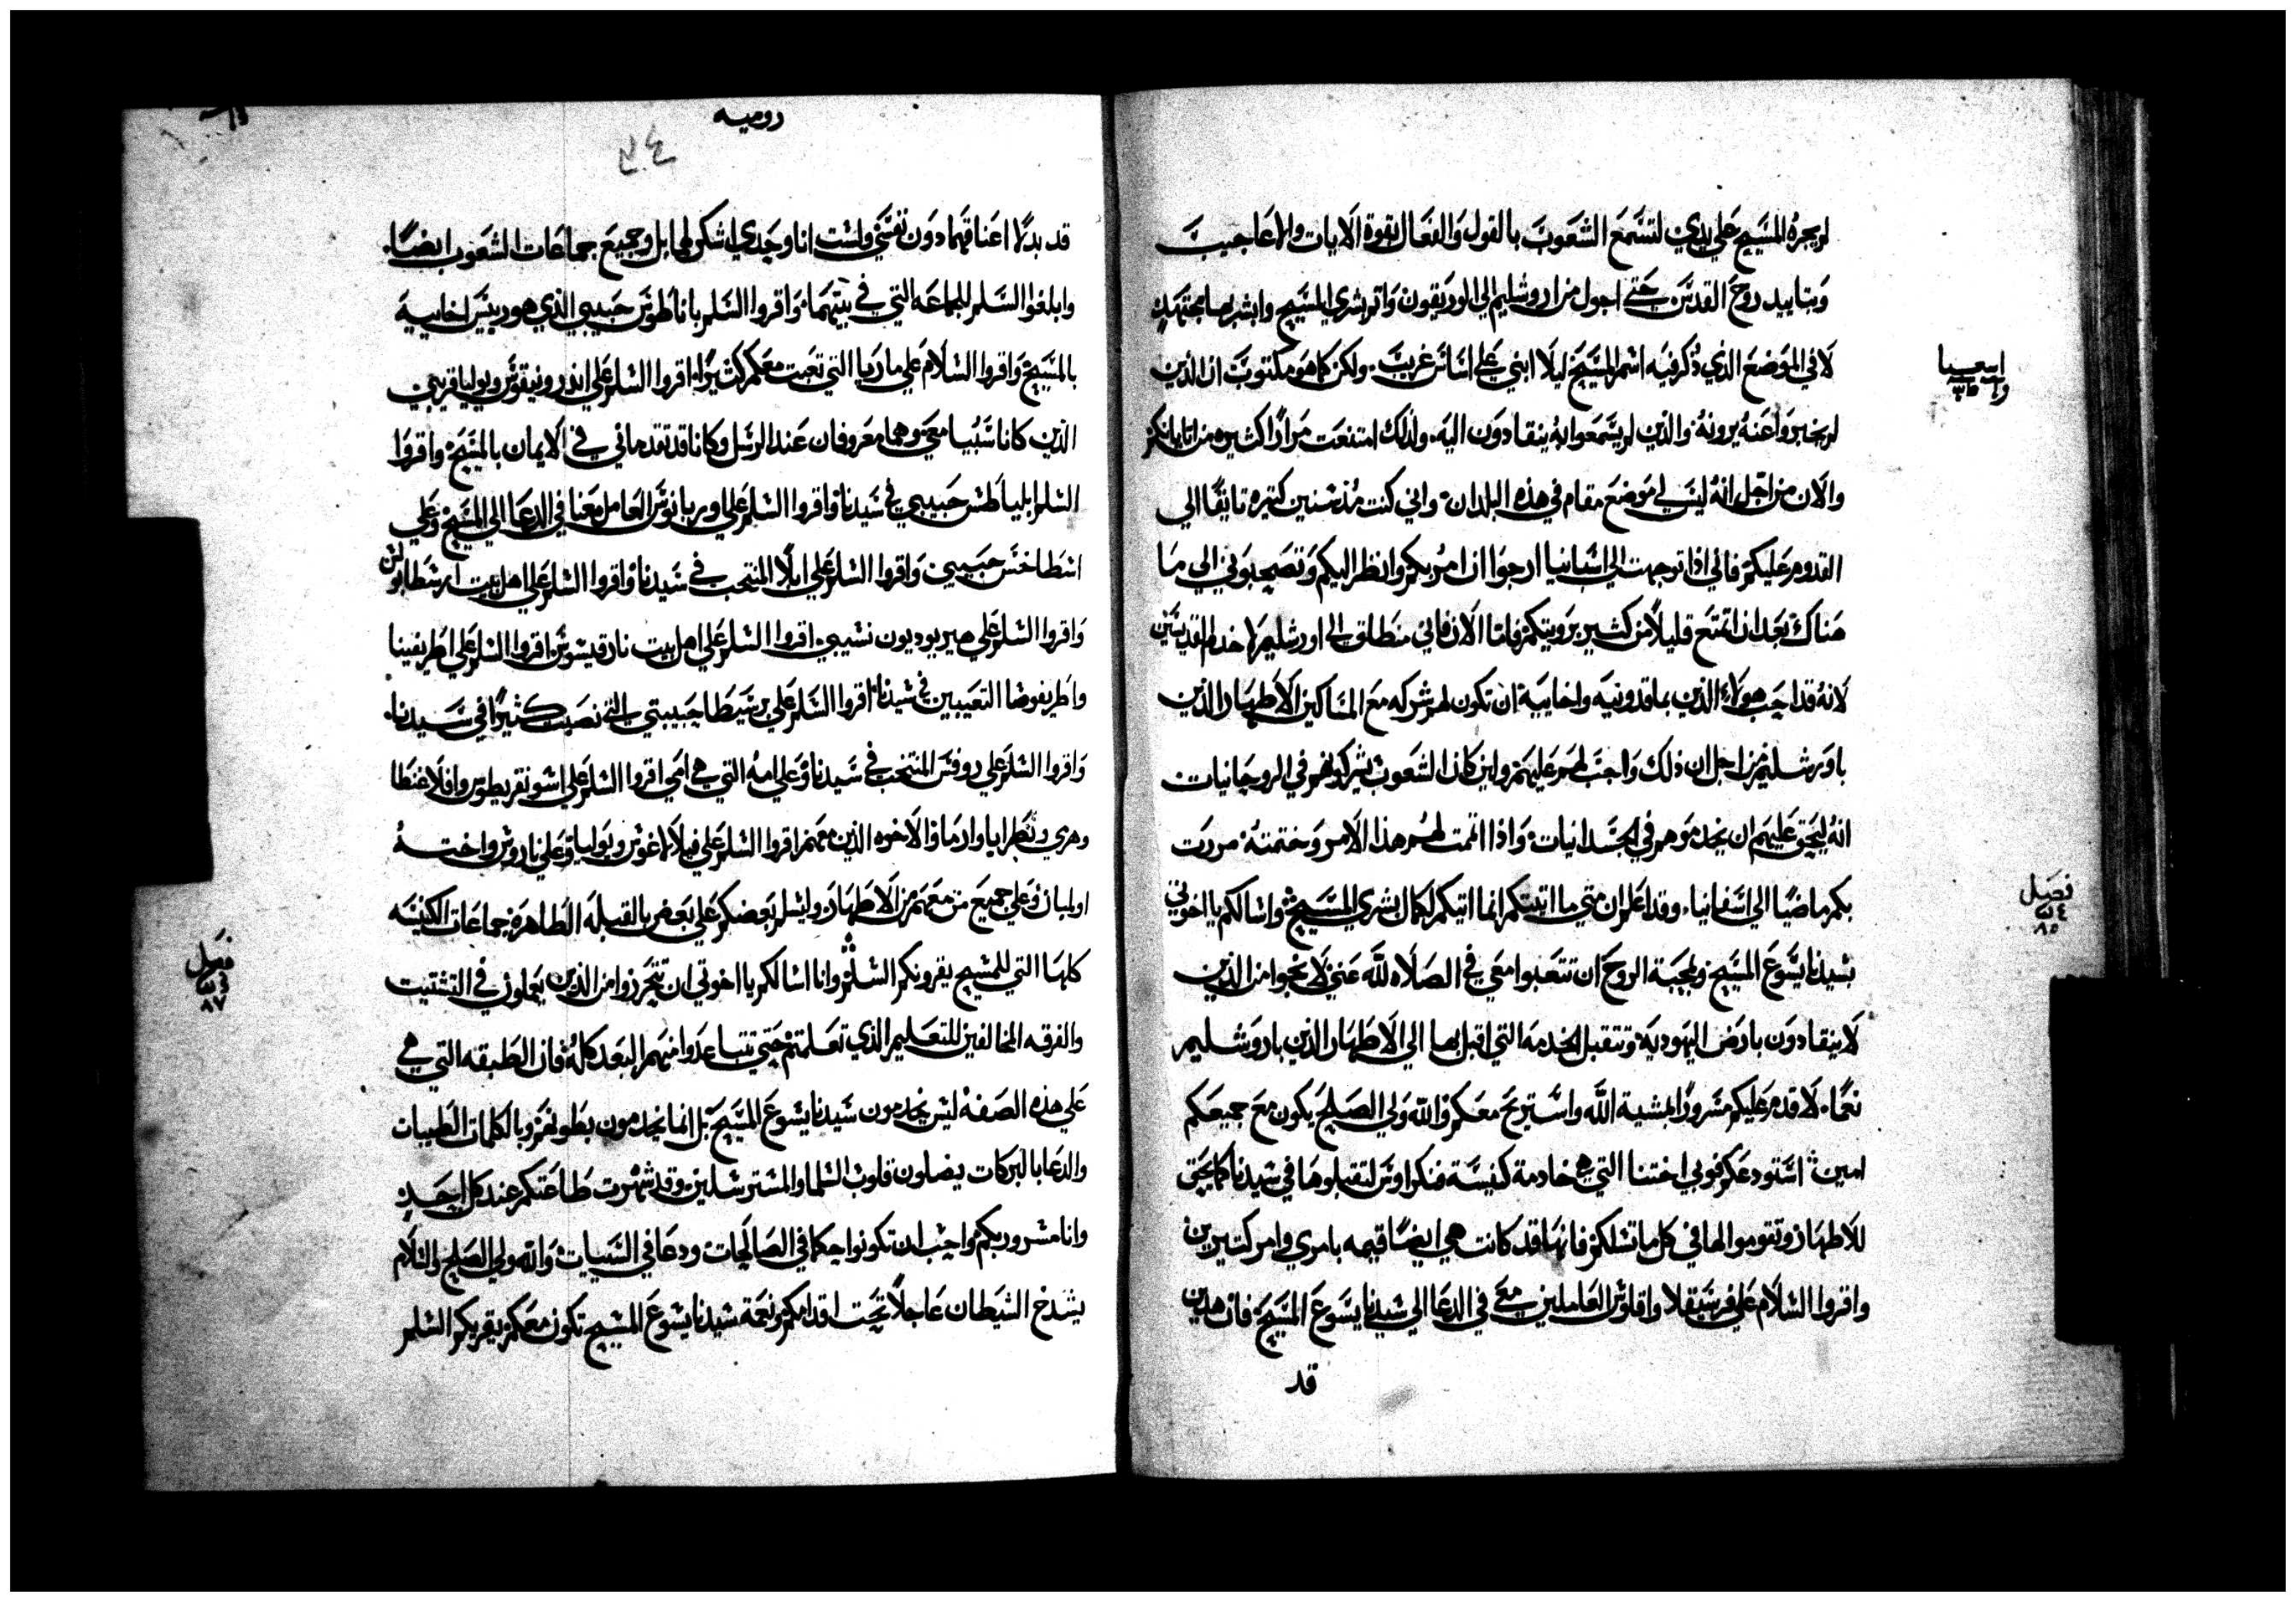 لم يجره المسيح علي يدي لتسمع الشعوب بالقول والفعال بقوة الايات والاعاجيب
وبتاييد روح القدس حتي اجول من اروشليم الي الوريقون واتم بشري المسيح وابشر بها مجتهد
اشعيا
لا في الموضع الذي ذكر فيه اسم المسيح ليلا ابني علي اساس غريب ولكن كما هو مكتوب ان الذين
لم يخبروا عنه يرونه والذين لم يسمعوا به ينقادون اليه ولذلك امتنعت مرارا كثيره من اتيانكم
والان من اجل انه ليس لي موضع مقام في هذه البلدان واني كنت مذ سنين كثيره تايقا الي
القدوم عليكم فاني اذا توجهت الي اسبانيا ارجوا ان امر بكم وانظر اليكم وتصحبوني الي ما
هناك بعد ان اتمتع قليلا من كثير برويتكم فاما الان فاني منطلق الي اورشليم لاخدم القديسين
لانه قد احب هولاء الذين بماقدونيه واخاييه ان تكون لهم شركه مع المساكين الاطهار الذين
باورشليم من اجل ان ذلك واجب لهم عليهم ولين كان الشعوب شركوهم في الروحانيات
انه ليحق عليهم ان يخدموهم في الجسدانيات واذا اتممت لهم هذا الامر وختمته مررت
فصل
٨٥
بكم ماضيا الي اسفانيا وقد اعلم ان متي ما اتيتكم انما اتيكم لكمال بشري المسيح واسالكم يا اخوتي
بسيدنا يسوع المسيح وبمحبة الروح ان تتعبوا معي في الصلاه لله عني لانجوا من الذين
لا ينقادون بارض اليهوديه وتتقبل الخدمه التي اقبل بها الي الاطهار الذين باروشليم
نعما لاقدم عليكم مسرورا بمشية الله واستريح معكم والله ولي الصلح يكون مع جميعكم
امين استودعكم فوبي اختنا التي هي خادمة كنيسة قنكراوس لتقبلوها في سيدنا كما يحق
للاطهار وتقوموا لها في كل ما تسلكم فانها قد كانت هي ايضا قيمه بامري وامر كثيرين
واقروا السلام علي فرسيقلا واقلوس العاملين معي في الدعا الي سيدنا يسوع المسيح فان هذين
قد
روميه
قد بذلا اعناقهما دون نفسي ولست انا وحدي اشكر لهما بل وجميع جماعات الشعوب ايضا
وابلغوا السلم للجماعه التي في بيتهما واقروا السلم باناطوس حبيبي الذي هو رييس اخاييه
بالمسيح واقروا السلام علي ماريا التي تعبت معكم كثيرا اقروا السلم علي اندرونيقوس ويوليا قريبي
الذين كانا سبيا معي وهما معروفان عند الرسل وكانا قد تقدماني في الايمان بالمسيح واقروا
السلم ابلياطس حبيبي في سيدنا واقروا السلم علي اوربانوس العامل معنا في الدعا الي المسيح وعلي
اسطاخس حبيبي واقروا السلم علي ابلا المنتخب في سيدنا واقروا السلم علي اهل بيت ارسطابولس
واقروا السلم علي هيريوديون نسيبي اقروا السلم علي اهل بيت نارقيسوس اقروا السلم علي اطريفينا
واطريفوضا التعيبين في سيدنا اقروا السلم علي برسيطا حبيبتي التي نصبت كثيرا في سيدنا
واقروا السلم علي روفس المنتخب في سيدنا وعلي امه التي هي امي اقروا السلم علي اسونقريطوس وافلاغنطا
وهرمي وبطرابا وارما والاخوه الذين معهم اقروا السلم علي فيلالاغوس ويوليا وعلي ناروس واخته
اولمبان وعلي جميع من معهم من الاطهار وليسلم بعضكم علي بعض بالقبله الطاهره جماعات الكنيسه
فصل
٨٧
كلها التي للمسيح يقرونكم السلم وانا اسالكم يا اخوتي ان تتحرزوا من الذين يعملون في التشتيت
والفرقه المخالفين للتعليم الذي تعلمتم حتي تتباعدوا منهم البعد كله فان الطبقه التي هي
علي هذه الصفه ليس يخدمون سيدنا يسوع المسيح بل انما يخدمون بطونهم وبالكلمات الطيبات
والدعا بالبركات يضلون قلوب السلما والمسترسلين وقد شهرت طاعتكم عند كل احد
وانا مسرور بكم واحب ان تكونوا حكما في الصالحات ودعا في السيات والله ولي الصلح والسلام
يشدخ الشيطان عاجلا تحت اقدامكم ونعمة سيدنا يسوع المسيح تكون معكم يقريكم السلم